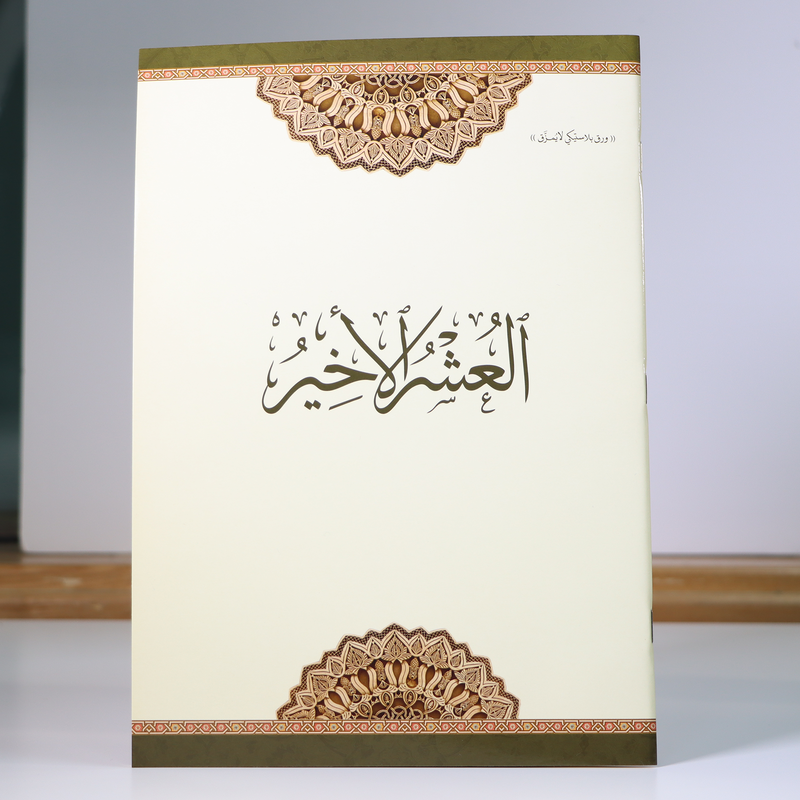 (( ورق بلاستيكي لايُمزَّق ))
العُشْرُ الأَخِيرُ